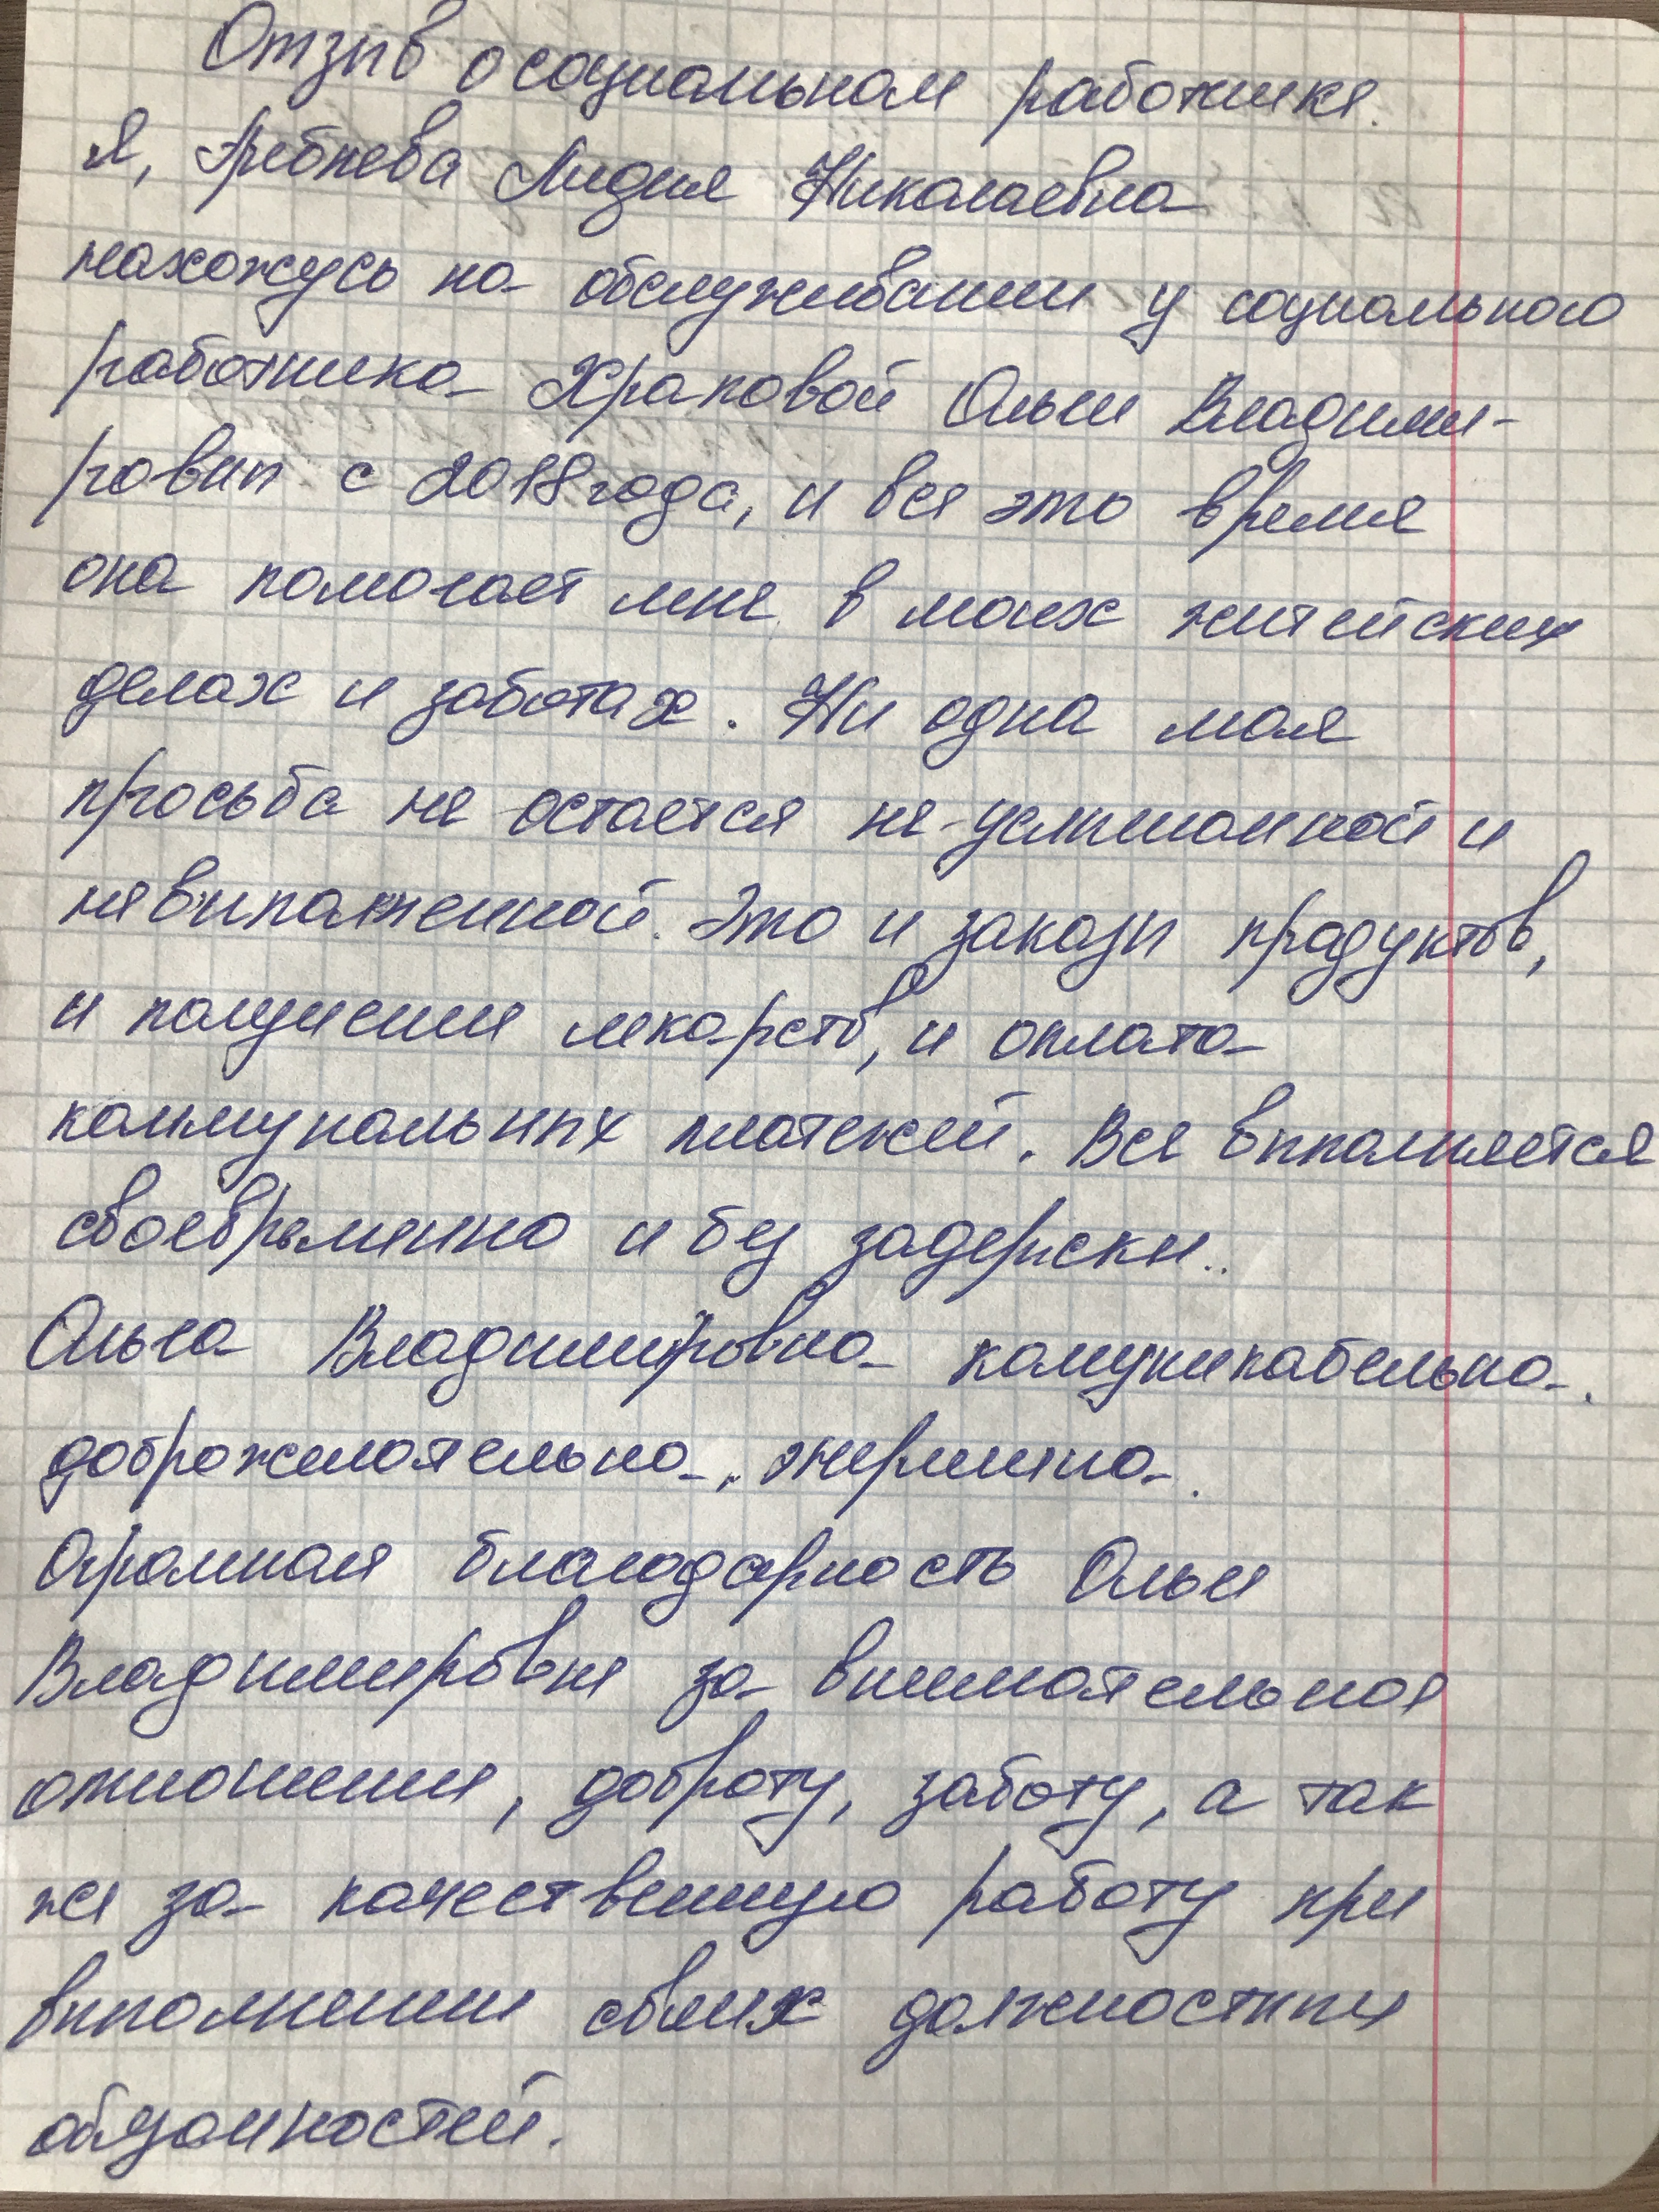 Отзыв о социальном работнике.
Я, Гребнева Лидия Николаевна
нахожусь на обслуживании у социального
работника Храповой Ольги Владими-
ровны с 2018 года, и все это время
она помогает мне в моих житейских
делах и заботах. Ни одна моя
просьба не остается не услышанной и
невыполненной. Это и заказы продуктов,
и получение лекарств, и оплата
коммунальных платежей. Все выполняется
своевременно и без задержки..
Ольга Владимировна коммуникабельна,
доброжелательна, энергична.
Огромная благодарность Ольги
Владимировне за внимательное
отношение, доброту, заботу, а так
же за качественную работу при
выполнении своих должностных
обязанностей.